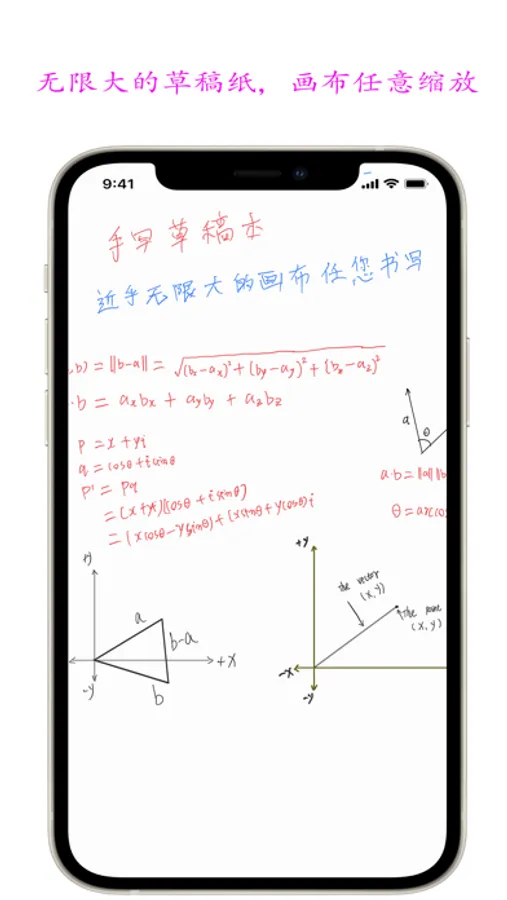 无限大的草稿纸，画布任意缩放
9:41
手写草稿本
近乎无限大的画布任您书写
,b) = ||b-a|| = √(bx-ax)²+(by-ay)²+(bz-az)²
·b = axbx + ayby + azbz
a
θ
p = x+yi
q = cosθ+isinθ
p' = pq
= (x+yi)(cosθ+isinθ)
= (xcosθ-ysinθ)+(xsinθ+ycosθ)i
a·b=||a|| ||b
θ=arccos
+y
a
b-a
+x
-y
b
+y
the vector
(x,y)
the point
(x,y)
-x
-y